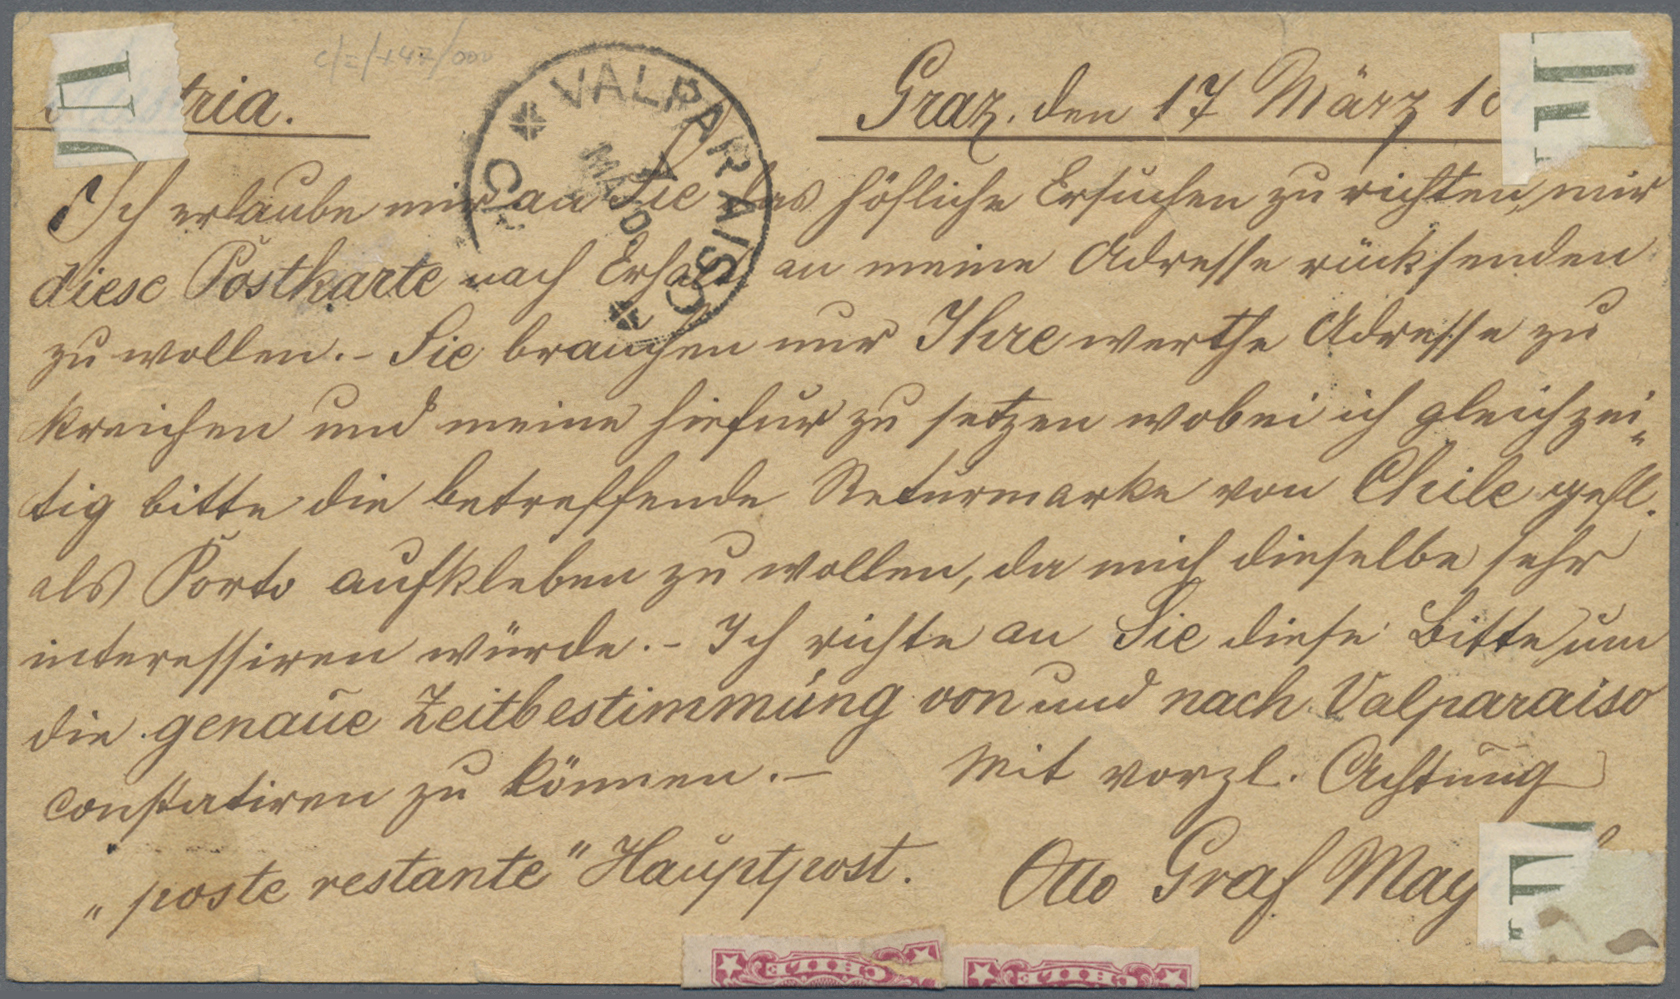 tria.
Graz, den 17 März 1
VALPARAISO
Ich erlaube mir an Sie das höfliche Ersuchen zu richten, mir
diese Postkarte nach Erhalt an meine Adresse rücksenden
zu wollen. – Sie brauchen nur Ihre werthe Adresse zu
streichen und meine hiefür zu setzen wobei ich gleichzei„
tig bitte die betreffende Returmarke von Chile gefl.
als Porto aufkleben zu wollen, da mich dieselbe sehr
interessiren würde. – Ich richte an Sie diese Bitte um
die genaue Zeitbestimmung von und nach Valparaiso
constatiren zu können. –
Mit vorzl. Achtung
„poste restante" Hauptpost.
Otto Graf May